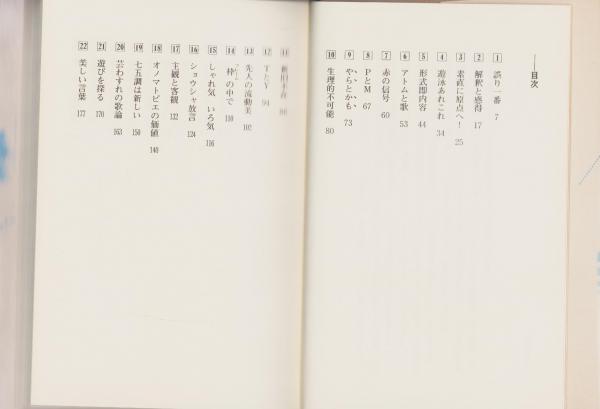 ――目次
1 誤り一番 7
2 解釈と感得 17
3 素直に原点へ! 25
4 遊泳あれこれ 34
5 形式即内容 44
6 アトムと歌 53
7 赤の信号 60
8 PとM 67
9 やらとかも 73
10 生理的不可能 80
11
12 TとY 94
13 先人の流動美 102
14 枠の中で 110
15 しゃれ気 いろ気 116
16 ショウシャ放言 124
17 主観と客観 132
18 オノマトピエの価値 140
19 七五調は新しい 150
20 芸わすれの歌論 163
21 遊びを探る 170
22 美しい言葉 177